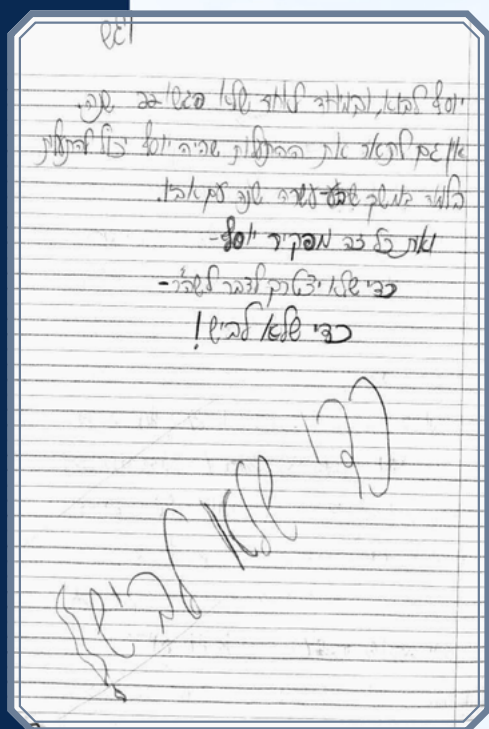 ויגש
יוסף לבוא, ובמיוחד לאחד שלא פגשו 22 שנה.
אין גם לתאר את ההתעלות שהיה יוסף יכול להתעלות
בלמדו במשך שבע עשרה שנה עם אביו.
ואת כל זה מפקיר יוסף-
כדי שלא יצטרך לדבר לשה"ר-
כדי שלא לבייש!
כדי שלא לבייש!